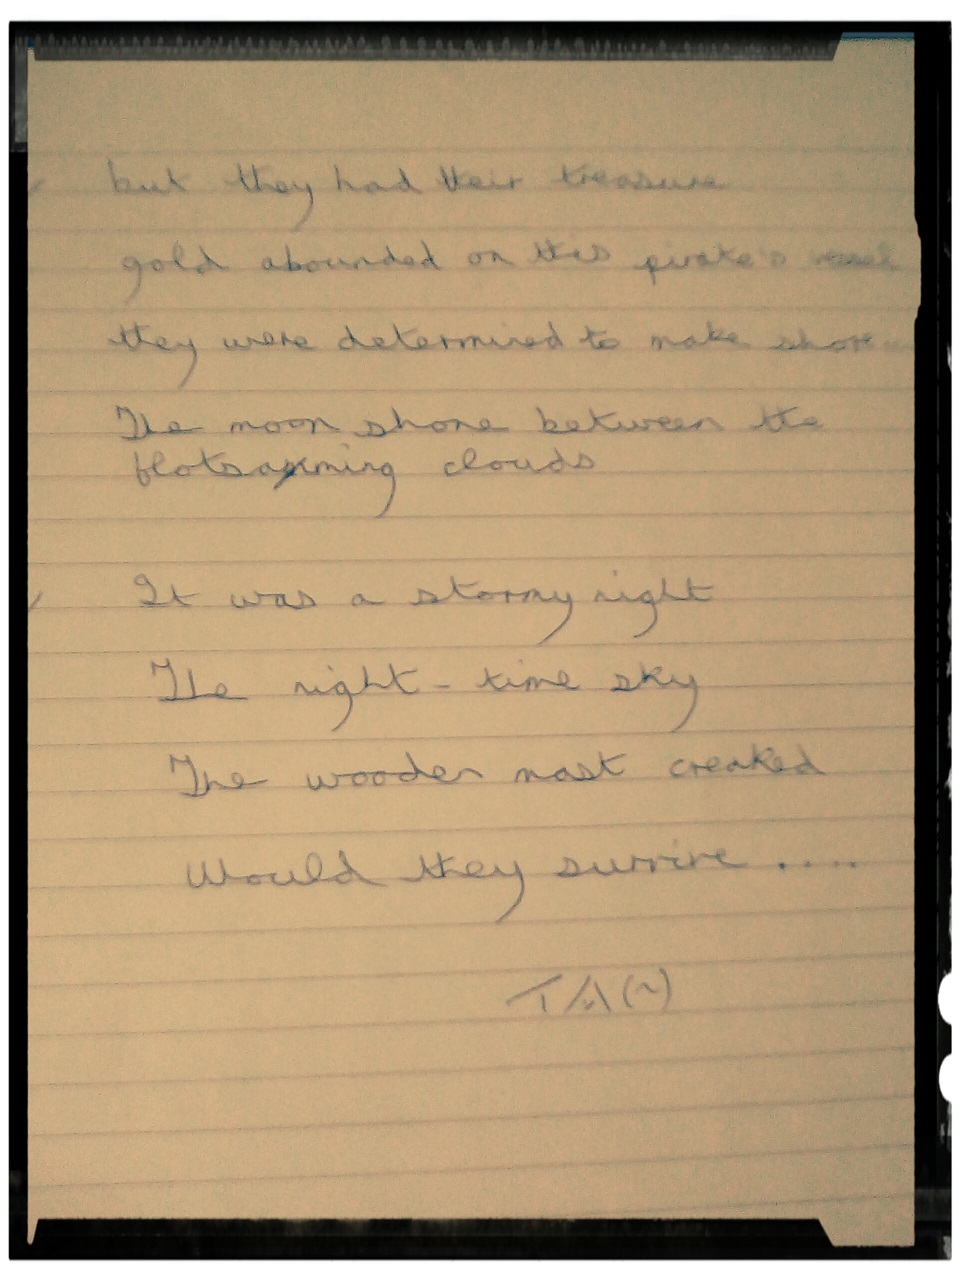 but they had their treasure
gold abounded on this pirate's vessel
they were determined to make shore
The moon shone between the
flotsamming clouds
It was a stormy night
The night-time sky
The wooden mast creaked
Would they survive ....
TA(~)